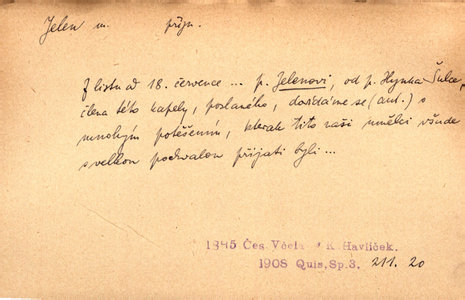 Jelen m. příjm.
Z listu od 18. července ... p. Jelenovi, od p. Hynka Šulce,
člena této kapely, poslaného, dovídáme se (aut.) s
mnohým potěšením, kterak tito naši umělci všude
s velkou pochvalou přijati byli ...
1845 Čes. Včela / K. Havlíček.
1908 Quis, Sp. 3. 211. 20